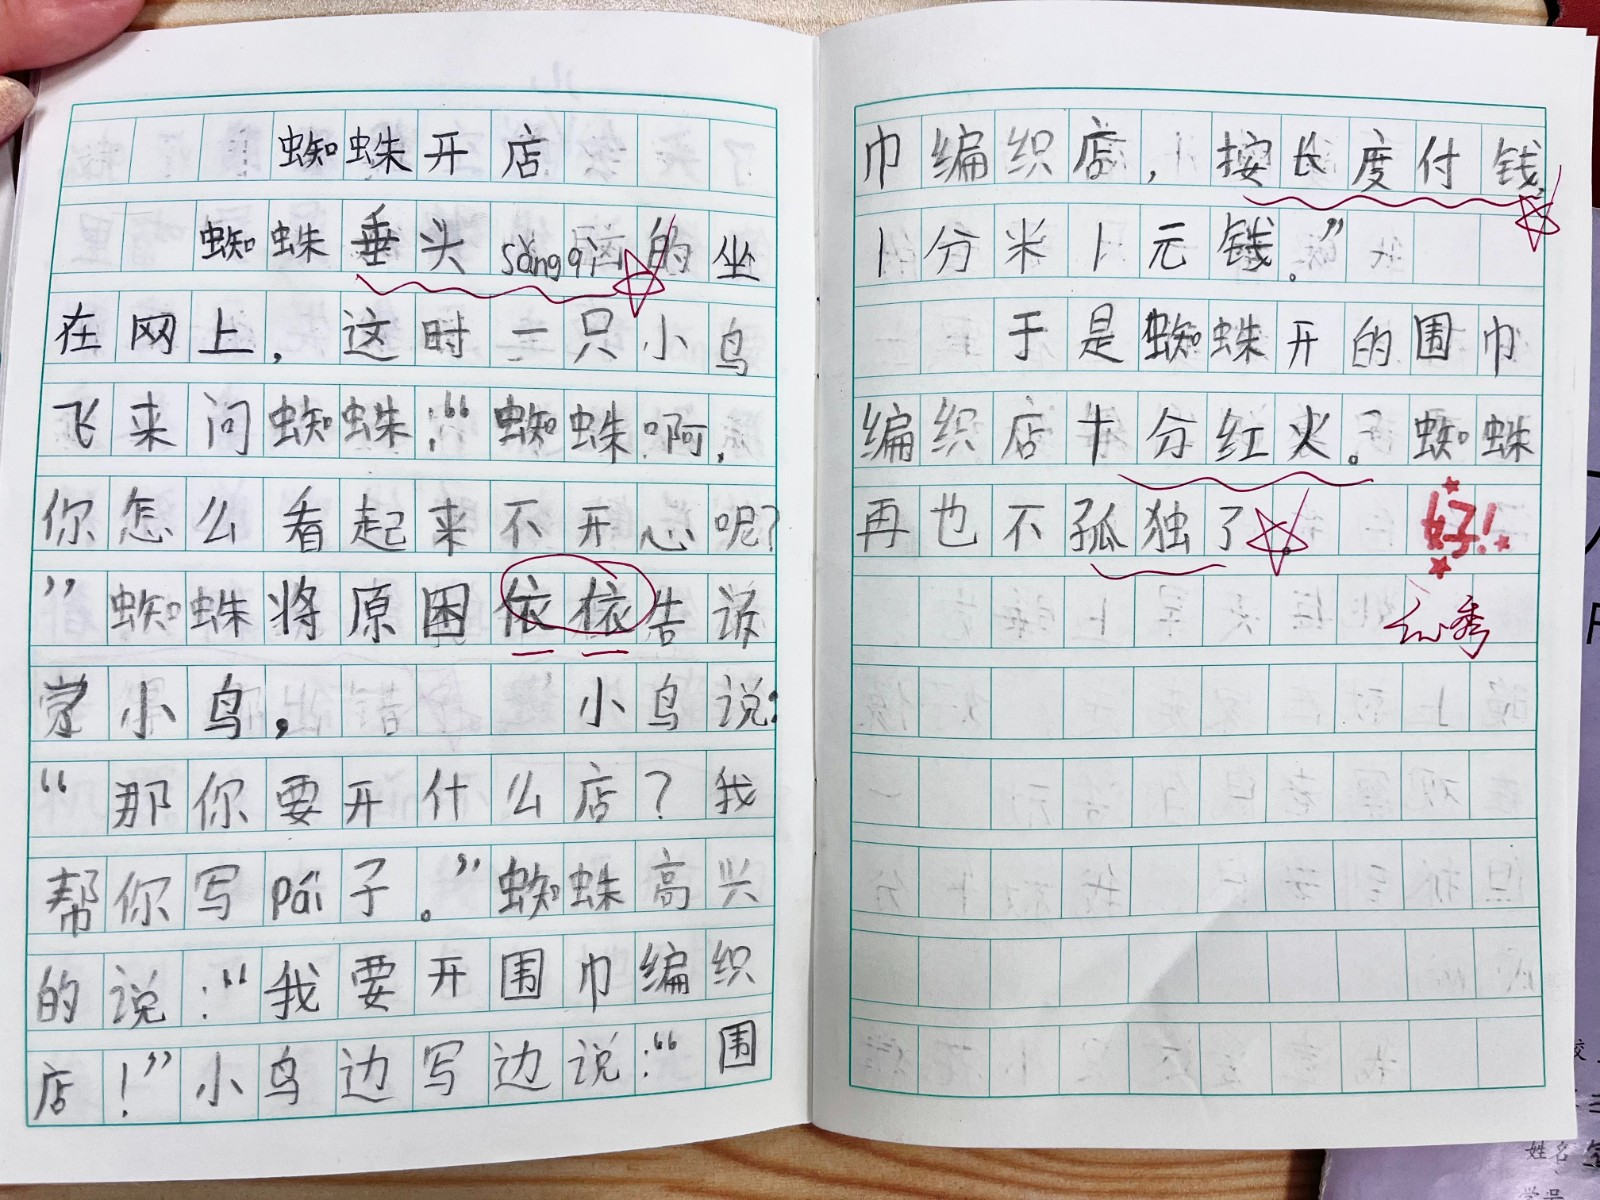 蜘蛛开店
蜘蛛垂头sàng qì的坐
在网上，这时一只小鸟
飞来问蜘蛛：“蜘蛛啊，
你怎么看起来不开心呢？
”蜘蛛将原困依依告诉
小鸟，小鸟说：
“那你要开什么店？我
帮你写pái子。”蜘蛛高兴
的说：“我要开围巾编织
店！”小鸟边写边说：“围
巾编织店，按长度付钱，
1分米1元钱。”
于是蜘蛛开的围巾
编织店十分红火。蜘蛛
再也不孤独了。
好！
姓名